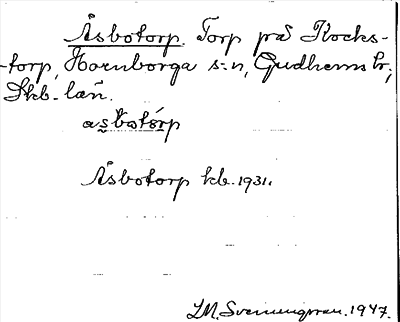 Åsbotorp. Torp på Klocks-
-torp, Hornborga s:n, Gudhems hr,
Skb. län.
asbotórp
Åsbotorp kb. 1931.
LM. Svenungsson. 1947.